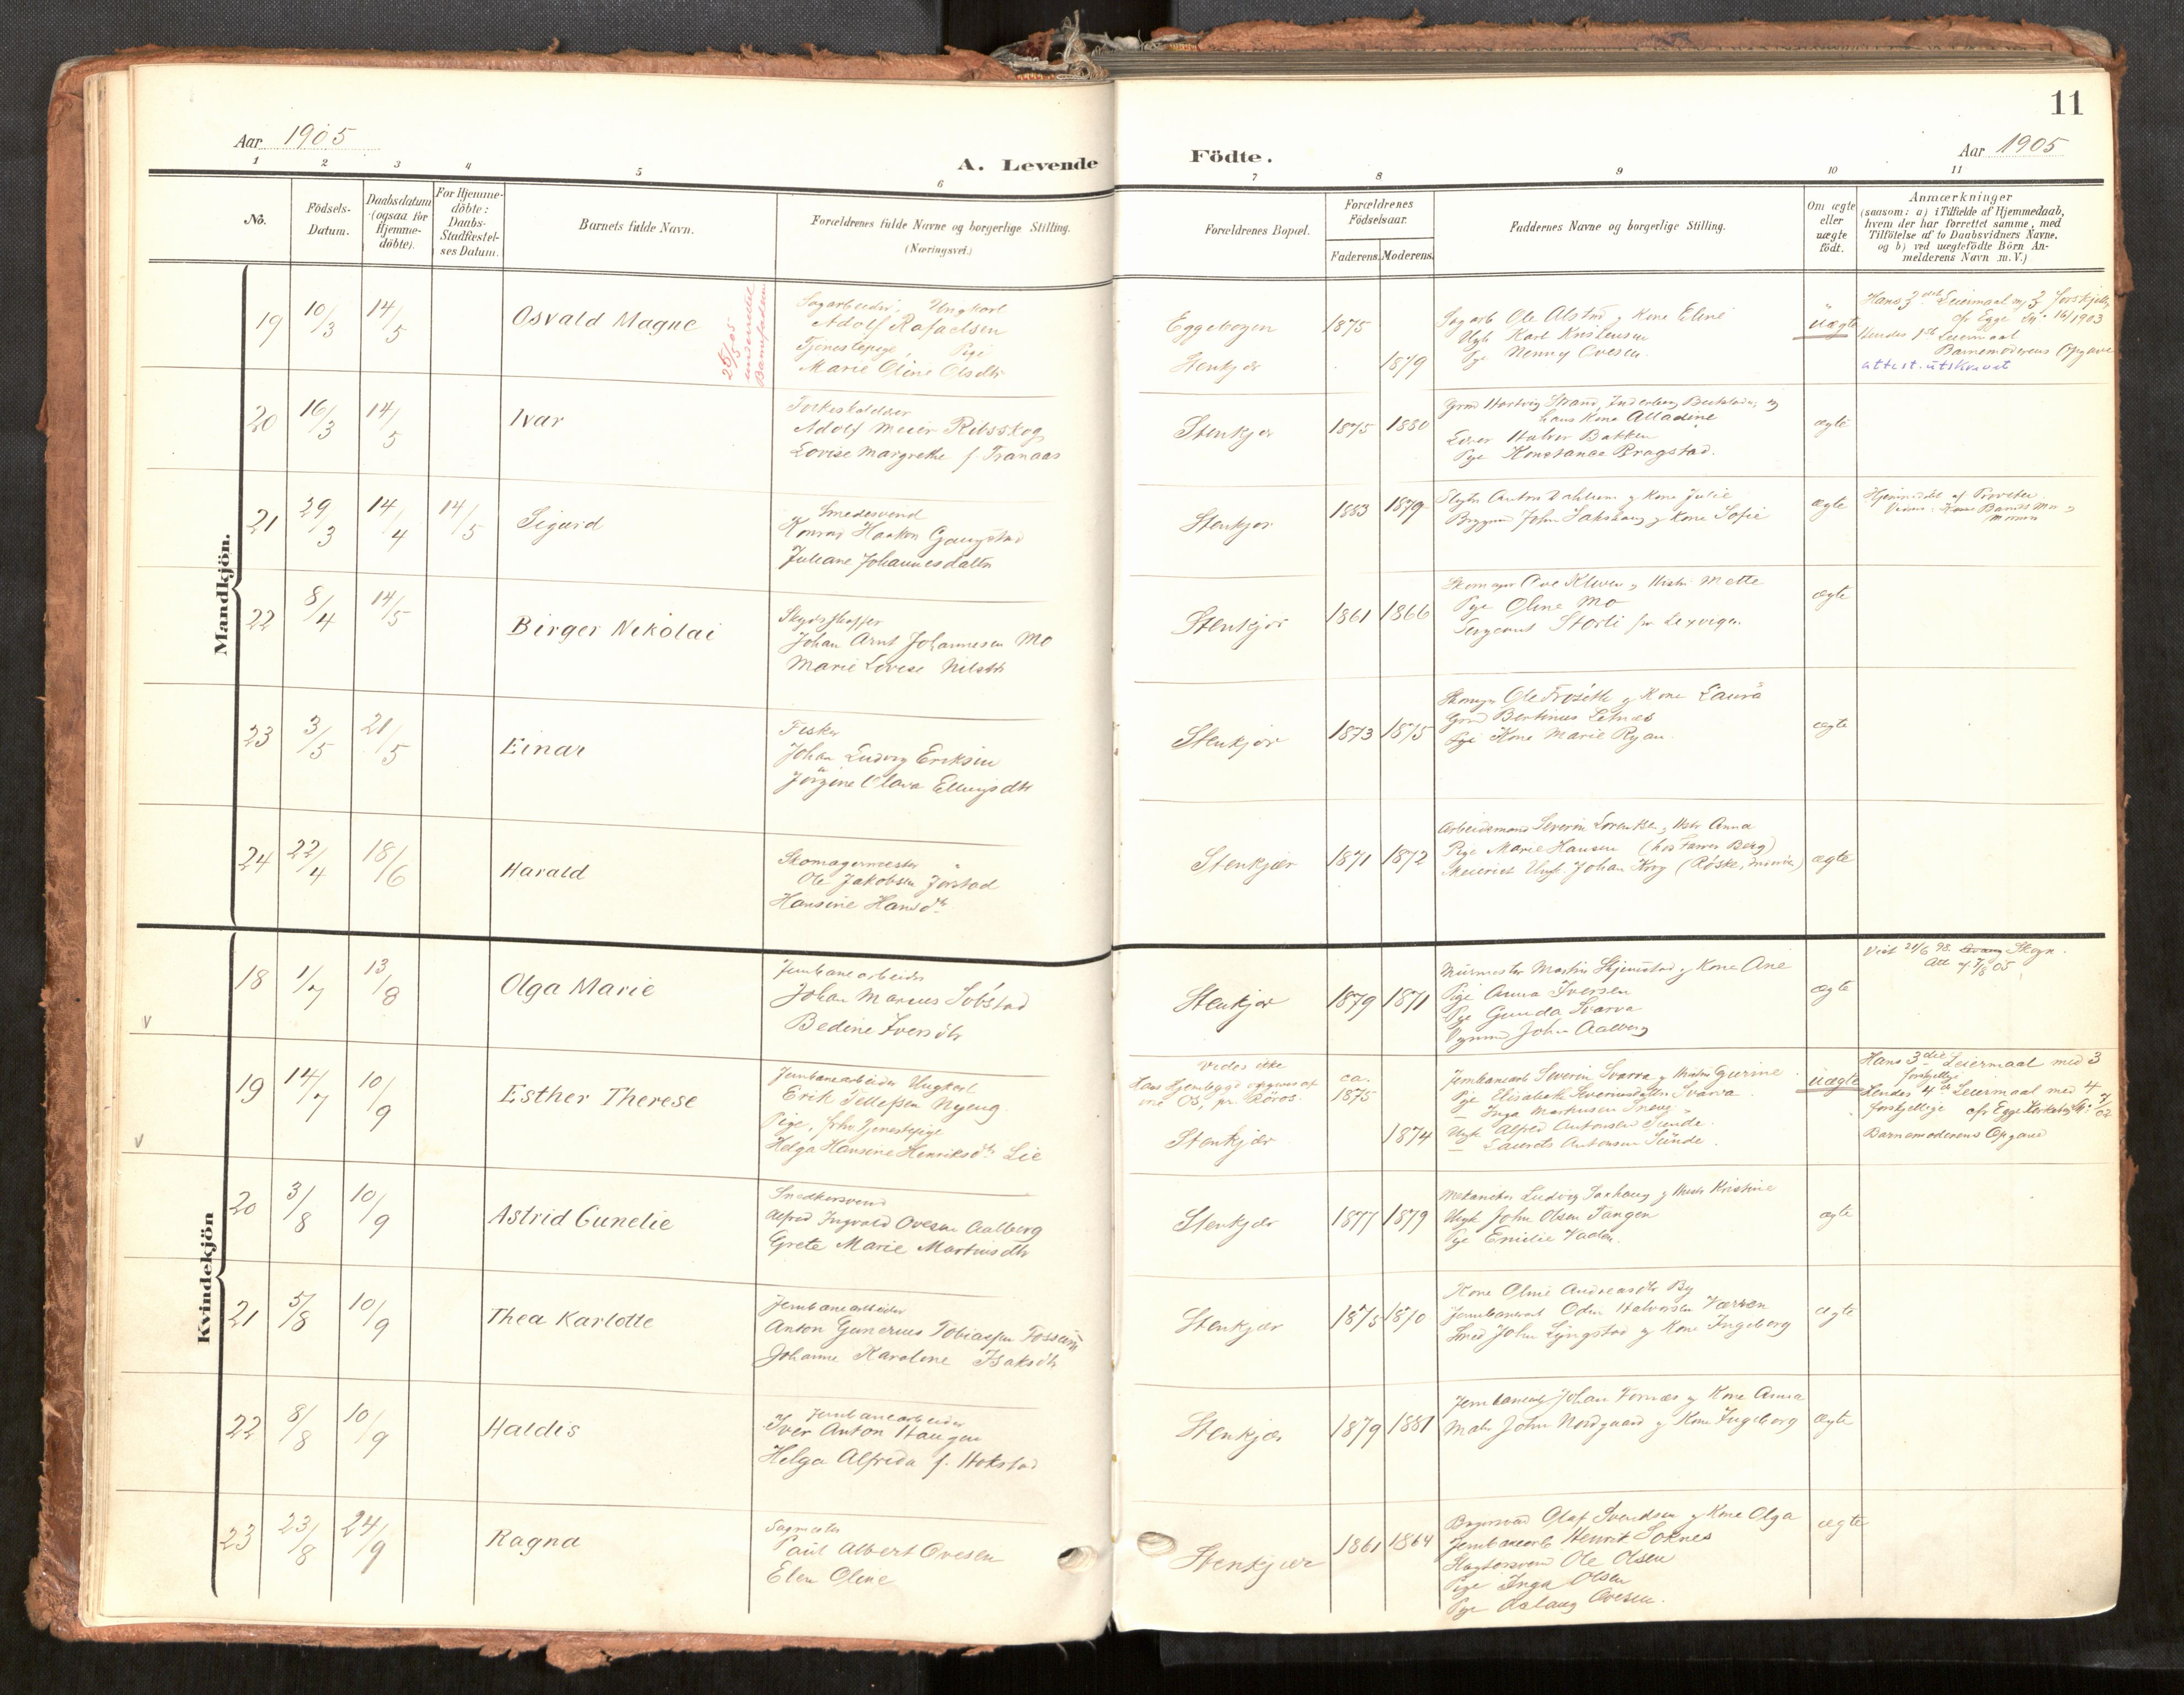 11
Aar 1905
Aar 1905
A. Levende Födte.
1 2 3 4 5 6 7 8 9 10 11
No.
Födsels-
Datum.
Daabsdatum
(ogsaa for
Hjemme-
döbte).
For Hjemme-
döbte:
Daabs-
Stadfæstel-
ses Datum.
Barnets fulde Navn.
Forældrenes fulde Navne og borgerlige Stilling.
(Næringsvei.)
Forældrenes Bopæl.
Forældrenes
Födselsaar.
Faderens. Moderens.
Faddernes Navne og borgerlige Stilling.
Om ægte
eller
uægte
födt.
Anmærkninger
(saasom: a) i Tilfælde af Hjemmedaab,
hvem der har forrettet samme, med
Tilföielse af to Daabsvidners Navne,
og b) ved uægtefödte Börn An-
melderens Navn m. V.)
Mandkjön.
19 10/3 14/5 Osvald Magne
25/5 05
underrettet
Barnefaderen
Sagarbeider, Ungkarl
Adolf Rafaelsen
Tjenestepige, Pige
Marie Oline Olsdtr
Eggebogen
Stenkjær
1875
1879
Sagarb Ole Alstad og Kone Eline
Ungk Karl Kristensen
Pge Nenny Ovesen.
uægte
Hans 3die Leiermaal m 3 forskjellige
cfr Egge 16/1903
Hendes 1ste Leiermaal
Barnemoderens Opgave
attest utskrevet
20 16/3 14/5 Ivar
Adolf Meier Ribsskog
Lovise Margrethe f. Tranaas
Stenkjær
1875 1880
Grd Hartvig Strand, Inderöen, og
hans Kone Alladine
Halvor Bakken
Pge Konstanse Bragstad.
ægte
21 29/3 14/4 14/5 Sigurd
Smedesvend
Konrad Haakon Gangstad
Juliane Johannesdatter
Stenkjær
1883 1879
Anton Dahlum og Kone Julie
John Sakshaug og Kone Sofie
ægte
Hjemmedöbt af Provsten
22 8/4 14/5 Birger Nikolai
Skydsskaffer
Johan Arnt Johannesen Mo
Marie Lovise Nilsdtr
Stenkjær
1861 1866
Skomager Ove Kleven og Hustr Mette
Pge Oline Mo
Sergeant Storli fra Lexviken
ægte
23 3/5 21/5 Einar
Fisker
Johan Ludvig Eriksen
Jörgine Olava Ellingsdtr
Stenkjær
1873 1875
Ole Fröseth og Kone Laura
Grd Bertinus Letnæs
Pge Kone Marie Ryan.
ægte
24 22/4 18/6 Harald
Skomagermester
Ole Jakobsen Jörstad
Hansine Hansdtr.
Stenkjær
1871 1872
Arbeidsmand Severin Lorentsen og Hustr Anna
Pige Marie Hansen (hos Farver Berg)
Meieriet Ungk. Johan Krog (Röske, meieriet)
ægte
Kvindekjön
18 1/7 13/8 Olga Marie
Jernbanearbeider
Johan Marius Söbstad
Bedine Iversdtr
Stenkjær
1879 1871
Murmester Martin Skjerstad og Kone Ane
Pige Anna Iversen
Pge Gunda Svarva
John Aalberg
ægte
Viet 21/6 98 Skogn.
Att af 7/8 05
19 14/7 10/9 Esther Therese
Jernbanearbeider Ungkarl
Erik Tellefsen Nyeng
Pige, fhv Tjenestepige
Helga Hansine Henriksdtr Lie
Vides ikke
Hans Hjembygd opgives at
være Os, pr. Röros.
Stenkjær
ca.
1875
1874
Jernbanearb Severin Svarva og Hustr Gurine
Pge Elisabeth Severinsdatter Svarva
— Inga Markusen Sneve
Ungk Alfred Antonsen Sunde
— Laurits Antonsen Sunde.
uægte
Hans 3die Leiermaal med 3
forskjellige
Hendes 4de Leiermaal med 4
forskjellige cfr Egge Kirkebog 7/02
Barnemoderens Opgave
20 3/8 10/9 Astrid Gunelie
Snedkersvend
Alfred Ingvald Ovesen Aalberg
Grete Marie Martinsdtr
Stenkjær
1877 1879
Ludvig Saxhaug og Hustr Kristine
Ungk John Olsen Tangen
Pge Emelie Vaaden.
ægte
21 5/8 10/9 Thea Karlotte
Jernbanearbeider
Anton Gunerius Tobiassen Fossum
Johanne Karoline Isaksdtr
Stenkjær
1875 1870
Kone Oline Andreasdtr By
Jernbanearb Odin Halvorsen Værken
Smed John Lyngstad og Kone Ingeborg
ægte
22 8/8 10/9 Haldis
Jernbanearbeider
Iver Anton Haugen
Helga Alfrida f. Hokstad
Stenkjær
1879 1881
Jernbanearb Johan Fornæs og Kone Anna
Maler John Nordgaard og Kone Ingeborg
ægte
23 23/8 24/9 Ragna
Sagmester
Paul Albert Ovesen
Elen Oline
Stenkjær
1861 1864
Olaf Svendsen og Kone Olga
Jernbanearb Henrik Soknes
Slagtersvend Ole Olsen
Pige Inga Olsen
Pge Aslaug Ovesen.
ægte